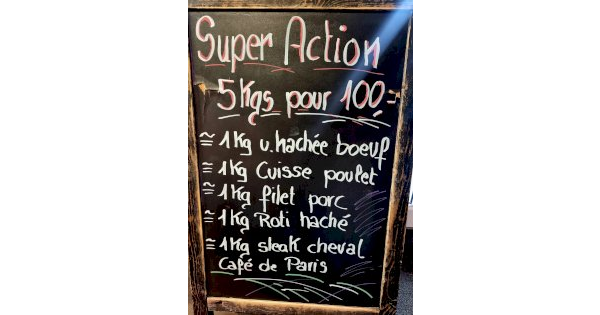 Super Action
5 Kgs pour 100.-
≅ 1 Kg v. hachée boeuf
≅ 1 Kg Cuisse poulet
≅ 1 Kg filet porc
≅ 1 Kg Roti haché
≅ 1 Kg steak cheval
Café de Paris